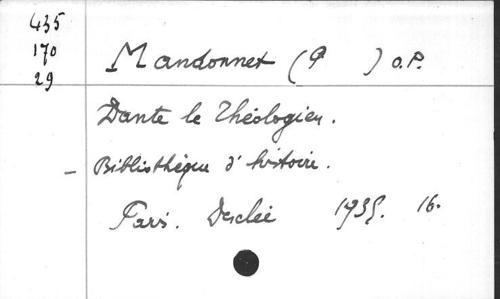 435
170
29
Mandonnet (P ) O.P.
Dante le Théologien.
- Bibliothèque d'histoire.
Paris. Desclée 1935. 16.